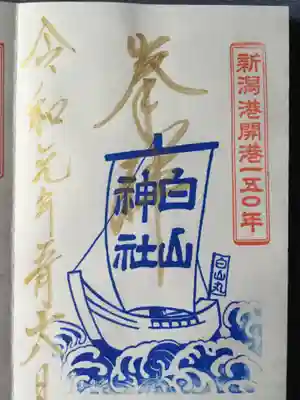 新潟港開港一五〇年
奉拝
白山
神社
白山丸
令和元年五月六日